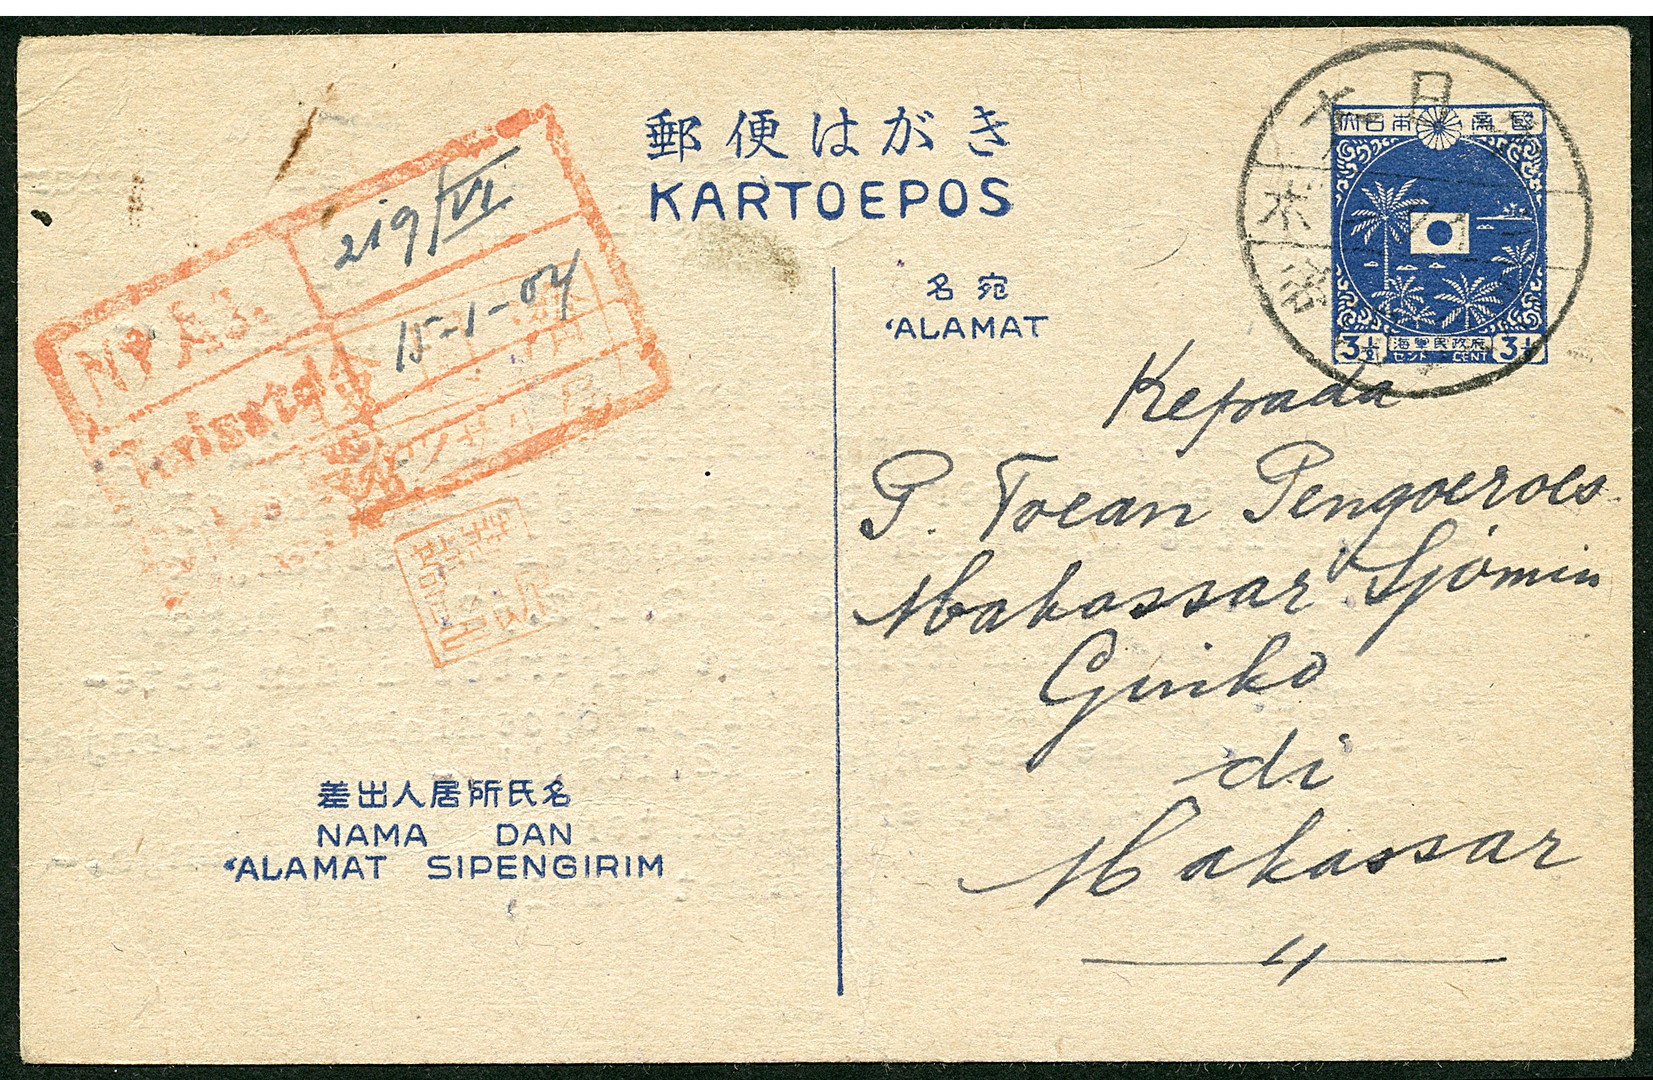 郵便はがき
KARTOEPOS
名宛
'ALAMAT
大日本帝國
3½ 海軍民政府 3½
セント CENT
219/VI
15-1-04
No. Ag.
金
Kepada
P. Toean Pengoeroes
Makassar Sjomin
Ginko
di
Makassar
差出人居所氏名
NAMA DAN
'ALAMAT SIPENGIRIM